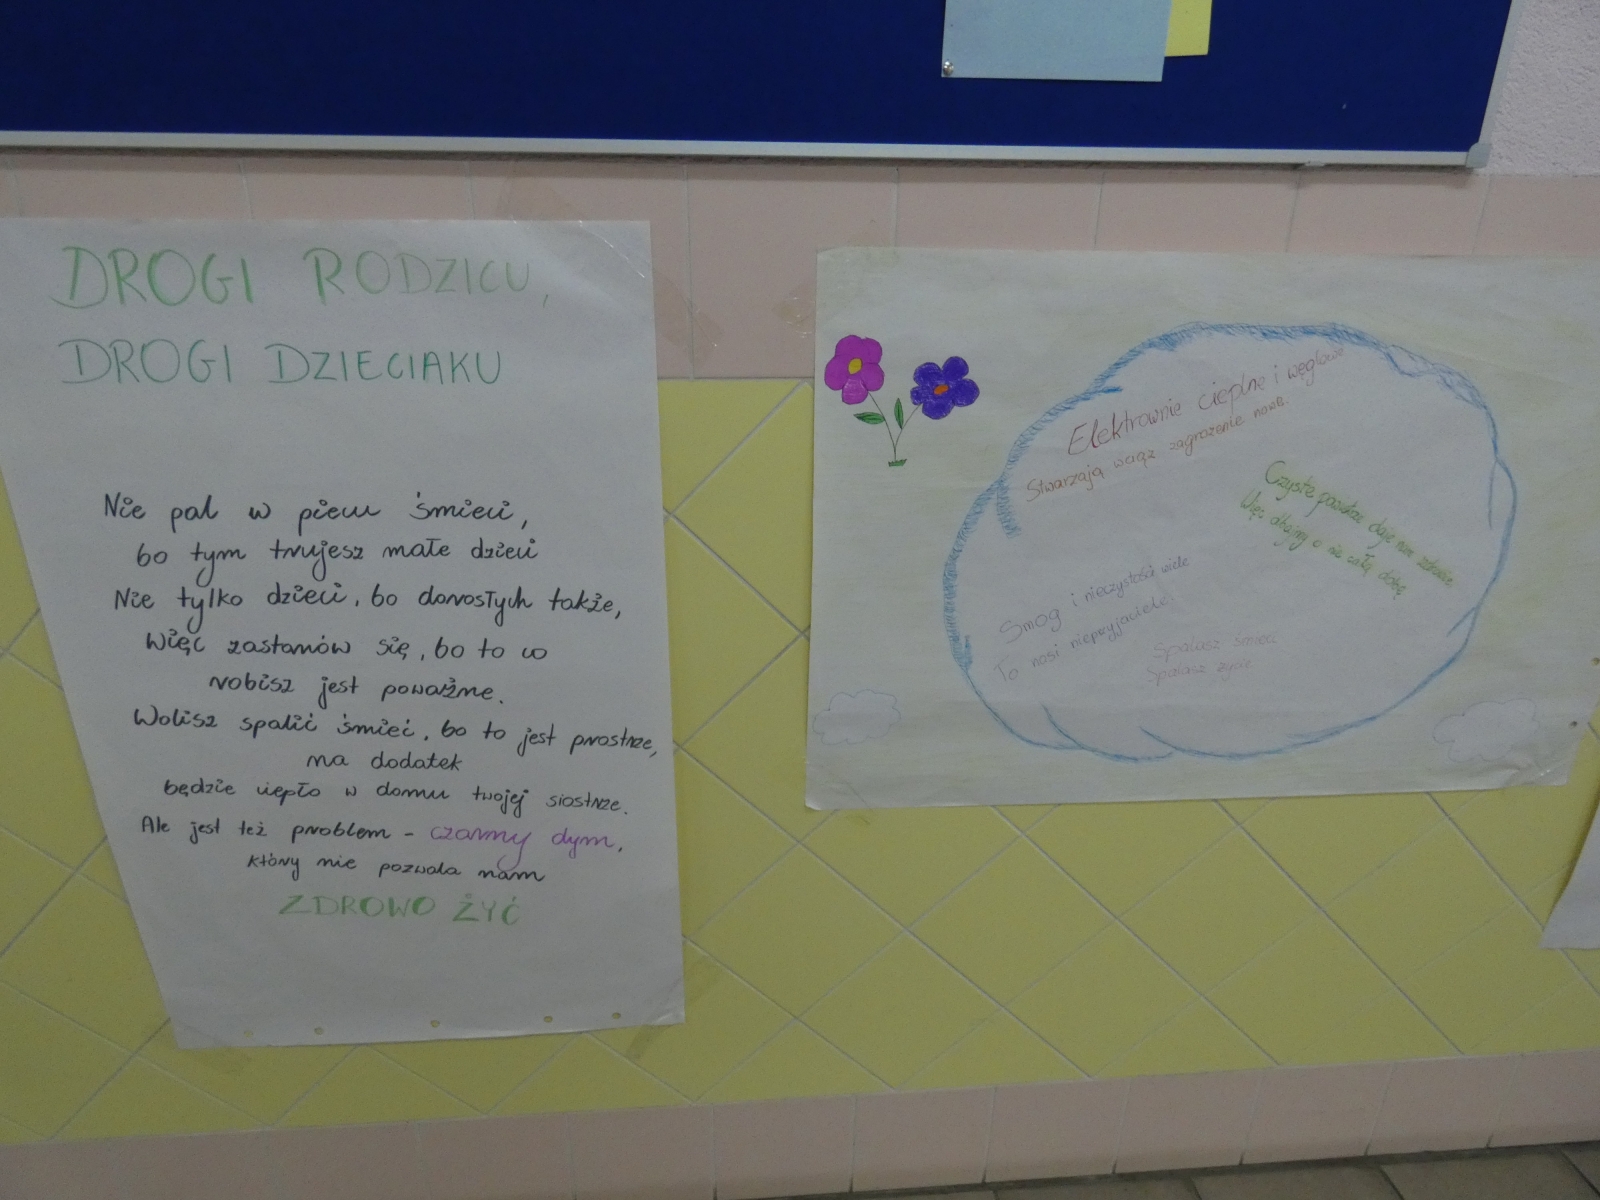 DROGI RODZICU,
DROGI DZIECIAKU
Nie pal w piecu śmieci,
bo tym trujesz małe dzieci
Nie tylko dzieci, bo dorosłych także,
Więc zastanów się, bo to co
robisz jest poważne.
Wolisz spalić śmieć, bo to jest prostrze,
na dodatek
będzie ciepło w domu twojej siostrze.
Ale jest też problem - czarny dym,
który nie pozwala nam
ZDROWO ŻYĆ
Elektrownie cieplne i węglowe
Stwarzają wciąż zagrożenie nowe.
Czyste powietrze daje nam zdrowie
Więc dbajmy o nie całą dobę
Smog i nieczystości wiele
To nasi nieprzyjaciele!
Spalasz śmieci
Spalasz życie